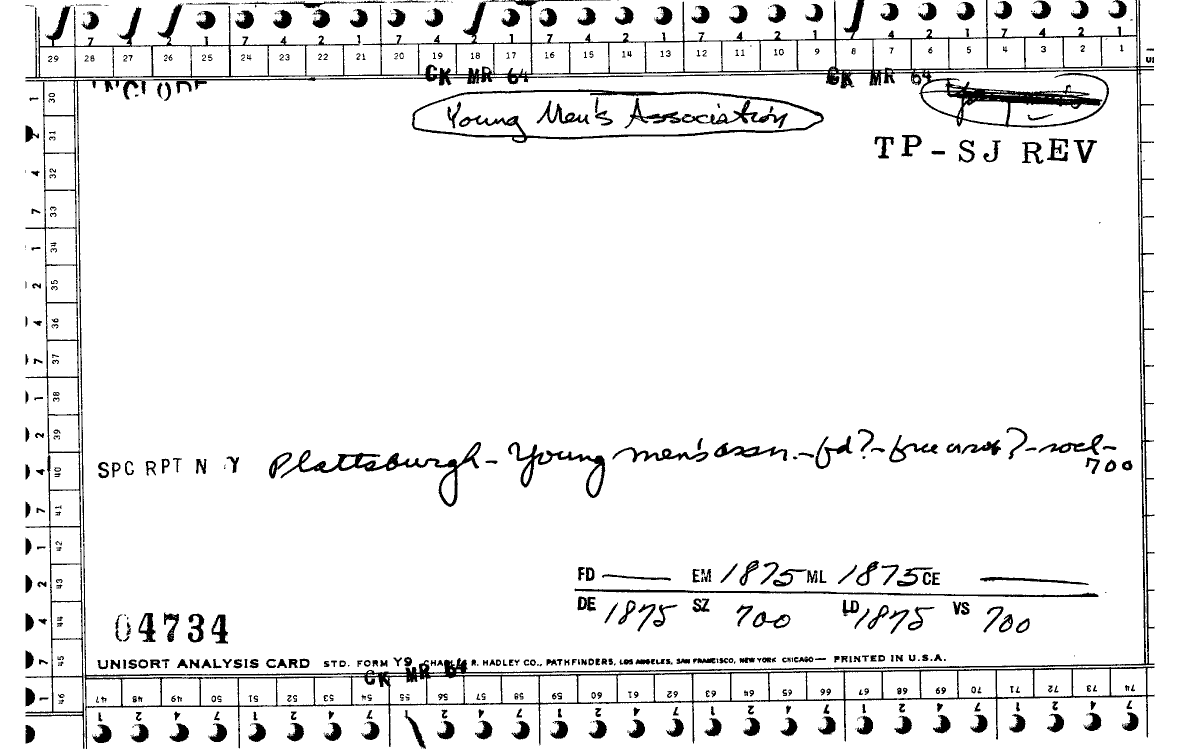 7 4 2 1 7 4 2 1 7 4 2 1 7 4 2 1 7 4 2 1 7 4 2 1
29 28 27 26 25 24 23 22 21 20 19 18 17 16 15 14 13 12 11 10 9 8 7 6 5 4 3 2 1
CK MR 64 CK MR 64
INCLUDE
Young Men's Association
TP-SJ REV
1 30
2 31
4 32
7 33
1 34
2 35
4 36
7 37
1 38
2 39
4 40
7 41
1 42
2 43
4 44
7 45
1 46
SPC RPT N Y Plattsburgh - Young men's assn. - fd? - free assn? - socl - 700
FD — EM 1875 ML 1875 CE —
DE 1875 SZ 700 LD 1875 VS 700
04734
UNISORT ANALYSIS CARD STD. FORM Y9 CHARLES R. HADLEY CO., PATHFINDERS, LOS ANGELES, SAN FRANCISCO, NEW YORK CHICAGO — PRINTED IN U.S.A.
CK MR 64
47 48 49 50 51 52 53 54 55 56 57 58 59 60 61 62 63 64 65 66 67 68 69 70 71 72 73 74
1 2 4 7 1 2 4 7 1 2 4 7 1 2 4 7 1 2 4 7 1 2 4 7 1 2 4 7